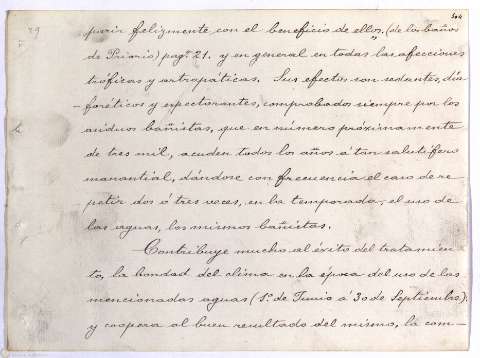 304
29
parir felizmente con el beneficio de ellos, (de los baños
de Priorio) pagª 21. y en general en todas las afecciones
tróficas y artropáticas. Sus efectos son sedantes, dia
foréticos y expectorantes, comprobados siempre por los
asiduos bañistas, que en número próximamente
de tres mil, acuden todos los años á tan salutífero
manantial, dándose con frecuencia el caso de re-
petir dos ó tres veces, en la temporada, el uso de
las aguas, los mismos bañistas.
Contribuye mucho al éxito del tratamien
to, la bondad del clima en la época del uso de las
mencionadas aguas (1º de Junio á 30 de Septiembre)
y coopera al buen resultado del mismo, la com-